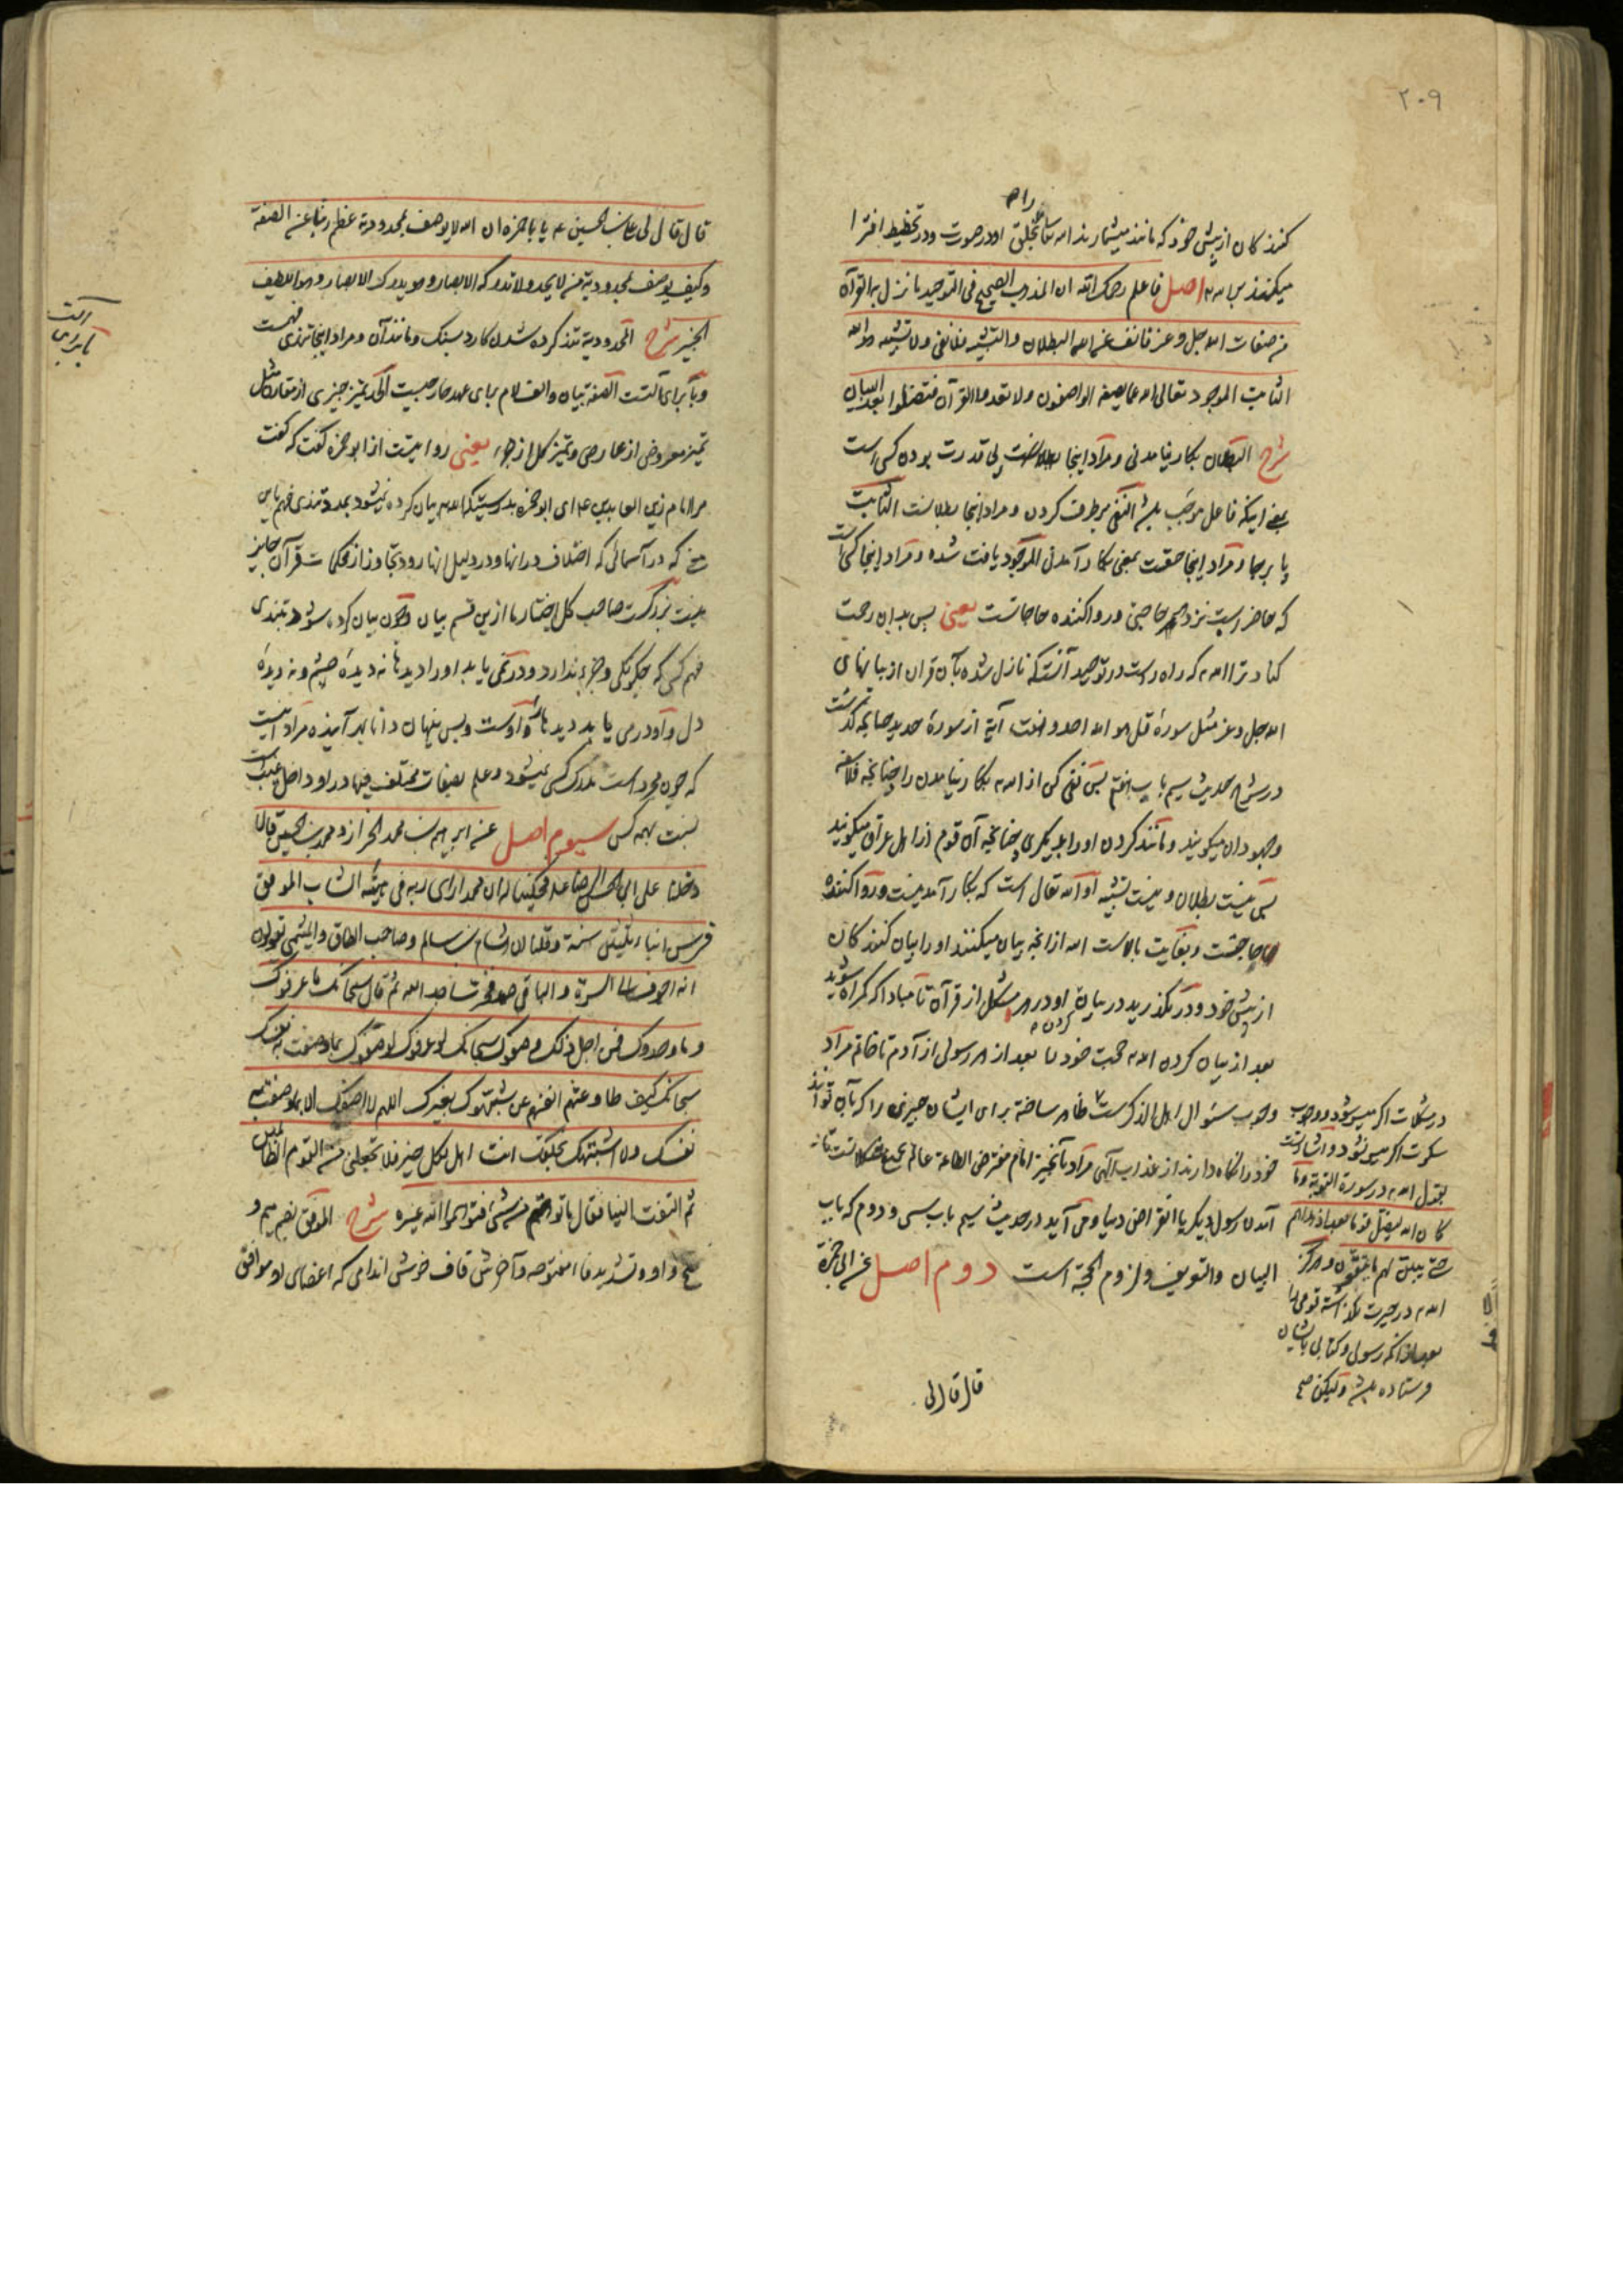 ۲۰۹
راه
کنندکان از پیش خود که مانند میشمارند الله تعالی بخلق او در صورت و در تخطیط افترا
میکنند بر الله اصل فاعلم رحمک الله ان المذهب الصحیح فی التوحید ما نزل به القرآن
من صفات الله جل وعز فانف عن الله البطلان والتشبیه فلا نفی ولا تشبیه هو الله
الثابت الموجود تعالی الله عما یصفه الواصفون ولا تعدوا القرآن فتضلوا بعد البیان
شرح البطلان بکار نیامدنی و مراد اینجا بی قدرت بودن کسی است
بمعنی اینکه فاعل موجب باشد النفی برطرف کردن و مراد اینجا الثابت
پا برجا و مراد اینجا حقّت بمعنی بکار آمدنی الموجود یافت شده و مراد اینجا کسی است
که حاضر است نزد هر حاجتی و روا کننده حاجاتست یعنی پس بدان رحمت
کناد ترا الله که راه راست در توحید آنستکه نازل شده بآن قران از بیانهای
الله جل وعز مثل سورهٔ قل هو الله احد و هفت آیة از سورهٔ حدید چنانچه گذشت
در شرح حدیث سیم باب هفتم پس نفی کن از الله بکار نیامدن را چنانچه فلاسفه
و یهودان میکویند و مانند کردن او را بدیگری چنانچه آن قوم از اهل عراق میکویند
پس نیست بطلان و نیست تشبیه او الله تعالی است که بکار آمدنیست و روا کننده
حاجاتست و بغایت بالاست الله از آنچه بیان میکنند او را بیان کنندکان
از پیش خود و در مگذرید در بیان او در هر مشکل از قرآن تا مبادا که کمراه شوید
کردن
بعد از بیان کردن الله حجت خود را بعد از هر رسولی از آدم تا خاتم مراد
وجوب سئوال اهل الذکرست ظاهر ساخته برای ایشان چیزی را که بآن توانند
خود را نگاه دارند از عذاب الهی مراد بآنچیز امام مفترض الطاعة عالم بجمیع مشکلاتست تا
آمدن رسول دیکر یا انقراض دنیا و می آید در حدیث سیم باب سی و دوم که باب
البیان والتعریف ولزوم الحجة است دوم اصل عن ابی حمزة
در مشکلات اگر میسر شود و وجوب
سکوت اگر میسر نشود و اشارتست
بقول الله در سورة التوبة وما
کان الله لیضل قوما بعد اذ هدیهم
حتی یبین لهم ما یتقون و هرگز
الله در حیرت نگذاشته قومی را
بعد از آنکه رسولی و کتابی بایشان
فرستاده باشد ولیکن صح
قال قال لی
قال قال لی علی بن الحسین ع یا با حمزه ان الله لا یوصف بمحدودیة عظم ربنا عن الصفة
وکیف یوصف بمحدودیة من لا یحد ولا تدرکه الابصار وهو یدرک الابصار وهو اللطیف
الخبیر شرح المحدودیة تند کرده شدن کارد بسنک و مانند آن و مراد اینجا تندی فهمست
و با برای آلتست الصفة بیان والف لام برای عهد خارجیست الحد تمیز چیزی از مقارنش مثل
تمیز معروض از عارض و تمیز کل از جزء یعنی روایتست از ابو حمزه گفت که کفت
مرا امام زین العابدین ع ای ابو حمزه بدرستیکه الله بیان کرده نمیشود بمدد تندی فهم
که در آسمانی که اختلاف در انها و در دلیل انها رود بتجاوز از محکمات قرآن جایز
نیست بزرکست صاحب کل اختیار ما ازین قسم بیان و چون بیان کرده شود بتندی
فهم کسی که چکونکی و جزء ندارد و در نمی یابد او را دیدها نه دیدهٔ چشم و نه دیدهٔ
دل و او در می یابد دیدها را و اوست و بس پنهان دانا بهر آینده مراد اینست
که چون مجرد است مدرک کسی نمیشود و علم بصفات مختلف فیها در او داخل غیبست
نسبت بهمه کس سیوم اصل عن ابراهیم بن محمد الخزاز و محمد بن الحسین قالا
دخلنا علی ابی الحسن الرضا ع فحکینا له ان محمدا رای ربه فی هیئة الشاب الموفق
فی سن ابناء ثلثین سنة وقلنا ان هشام بن سالم وصاحب الطاق والمیثمی یقولون
انه اجوف الی السرة والباقی صمد فخر ساجدا لله ثم قال سبحانک ما عرفوک
وما وحدوک فمن اجل ذلک وصفوک سبحانک لو عرفوک لوصفوک بما وصفت به نفسک
سبحانک کیف طاوعتهم انفسهم عن شبهوک بغیرک اللهم لا اصفک الا بما وصفت به
نفسک ولا اشبهک بخلقک انت اهل لکل خیر فلا تجعلنی من القوم الظالمین
ثم التفت الینا فقال ما توهمتم من شیء فتوهموا الله غیره شرح الموفق بضم میم و
فتح واو و تشدید فاء مفتوحه و آخرش قاف خوش اندامی که اعضای او موافق
آلت
با برای